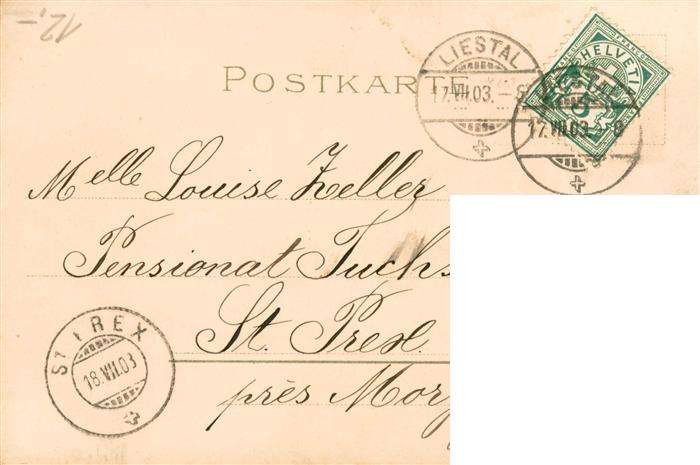 12,-
POSTKARTE
LIESTAL
17.VII.03.-8
HELVETIA
5
17.VII.03.-8
Mlle Louise Zeller
Pensionat Fuchs
St. Prex.
près Morg
ST PREX
18.VII.03